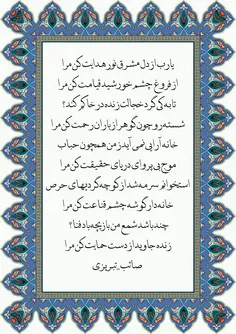 یارب از دل مشرق نور هدایت کن مرا
از فروغ چشم خورشید قیامت کن مرا
تا به کی گرد خجالت زنده در خاکم کند؟
شسته رو چون گوهر از باران رحمت کن مرا
خانه آرایی نمی آید ز من همچون حباب
موج بی پروای دریای حقیقت کن مرا
استخوانم سرمه شد از کوچه گردیهای حرص
خانه دار گوشه چشم قناعت کن مرا
چند باشد شمع من بازیچه باد فنا؟
زنده جاوید از دست حمایت کن مرا
صائب تبریزی